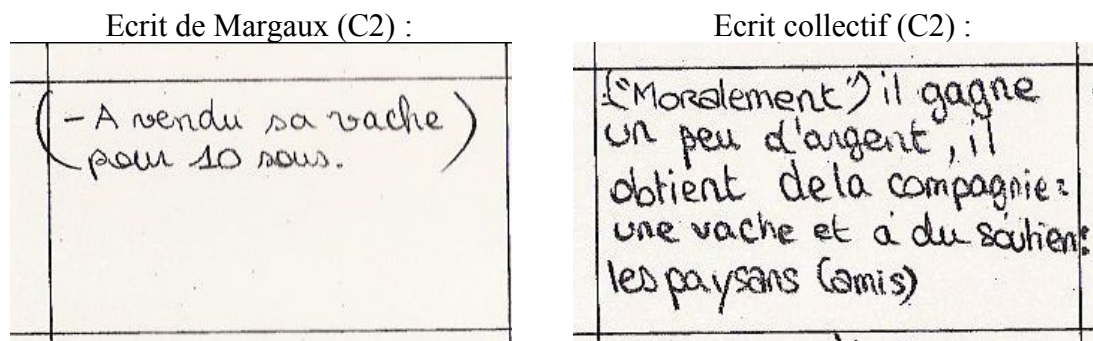 Ecrit de Margaux (C2) :
(- A vendu sa vache
pour 10 sous.)
Ecrit collectif (C2) :
("Moralement") il gagne
un peu d'argent, il
obtient de la compagnie :
une vache et a du soutien :
les paysans (amis)